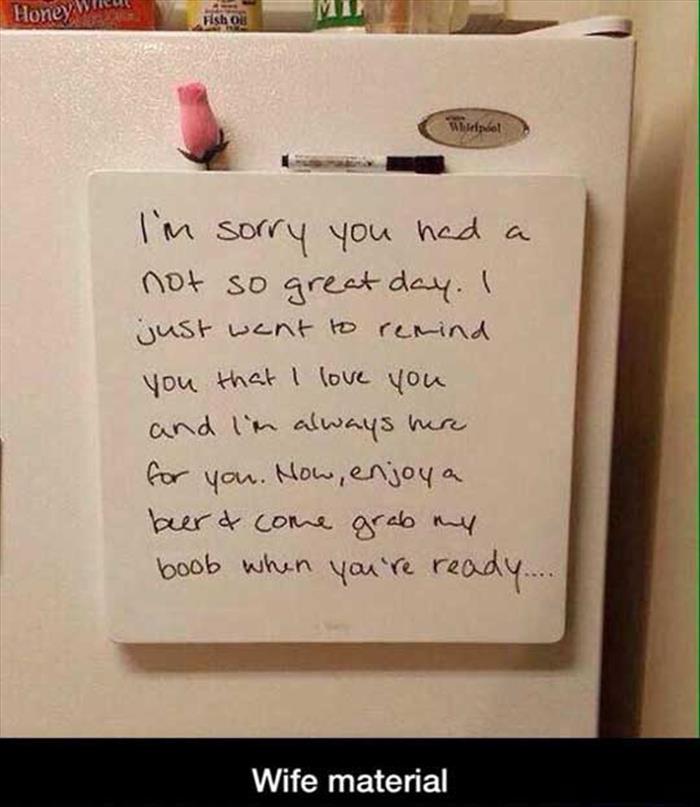 Honey
Fish Oil
Whirlpool
I'm sorry you had a
not so great day. I
just want to remind
you that I love you
and I'm always here
for you. Now, enjoy a
beer & come grab my
boob when you're ready....
Wife material